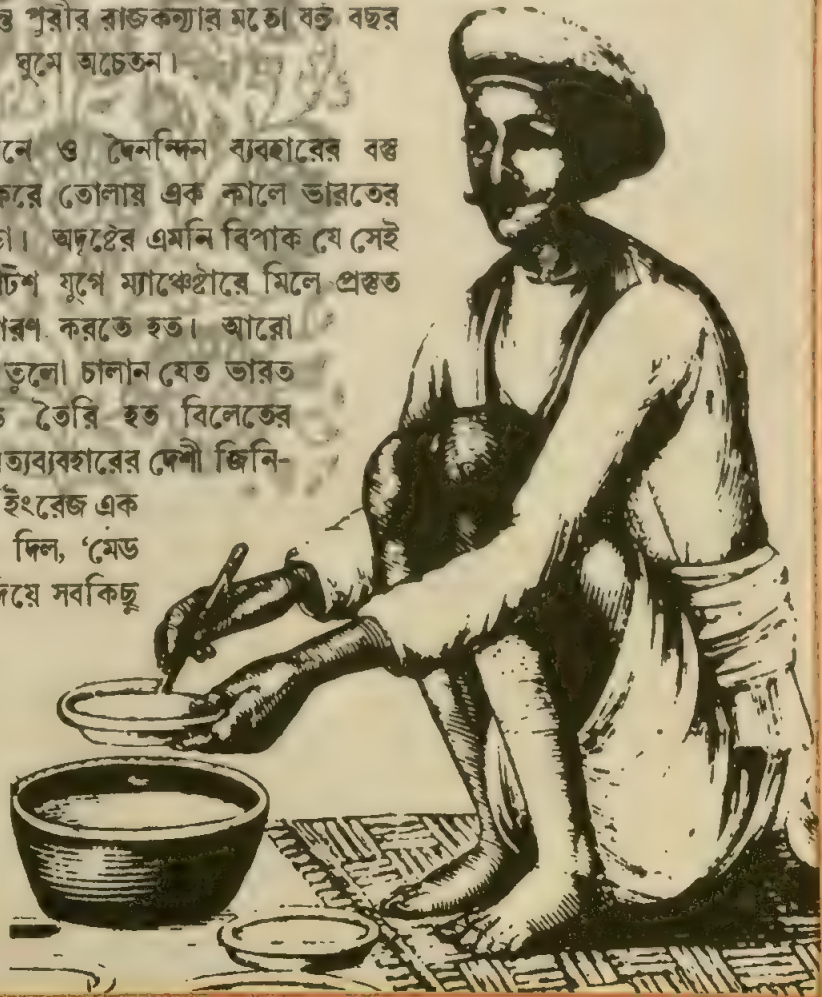 ন্ত পুরীর রাজকন্যার মতো বহু বছর
ঘুমে অচেতন।
নে ও দৈনন্দিন ব্যবহারের বস্তু
করে তোলায় এক কালে ভারতের
া। অদৃষ্টের এমনি বিপাক যে সেই
টিশ যুগে ম্যাঞ্চেষ্টারে মিলে প্রস্তুত
ধারণ করতে হত। আরো
তুলো চালান যেত ভারত
ত তৈরি হত বিলেতের
ত্যব্যবহারের দেশী জিনি-
ইংরেজ এক
দিল, ‘মেড
দিয়ে সবকিছু